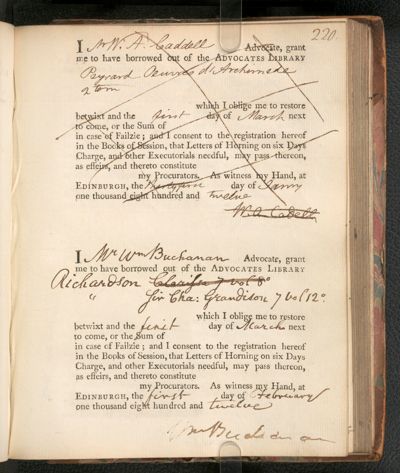 220.
I Mr W. A. Caddell Advocate, grant
me to have borrowed out of the ADVOCATES LIBRARY
Peyrard Oeuvres d'Archimede
2 tom
which I oblige me to restore
betwixt and the first day of March next
to come, or the Sum of
in case of Failzie; and I consent to the registration hereof
in the Books of Session, that Letters of Horning on six Days
Charge, and other Executorials needful, may pass thereon,
as effeirs, and thereto constitute
my Procurators. As witness my Hand, at
EDINBURGH, the day of Janry
one thousand eight hundred and twelve
W. A. Cadell
I Mr Wm Buchanan Advocate, grant
me to have borrowed out of the ADVOCATES LIBRARY
Richardson Clarissa 7 vol 8o
" Sir Cha: Grandison 7 vol 12o.
which I oblige me to restore
betwixt and the first day of March next
to come, or the Sum of
in case of Failzie; and I consent to the registration hereof
in the Books of Session, that Letters of Horning on six Days
Charge, and other Executorials needful, may pass thereon,
as effeirs, and thereto constitute
my Procurators. As witness my Hand, at
EDINBURGH, the first day of February
one thousand eight hundred and twelve
Wm Buchanan